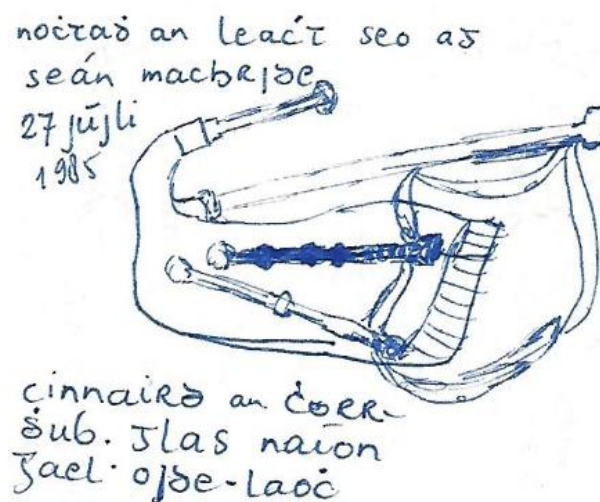 noċtaḋ an leaċt seo ag
seán macbrjde
27 jújli
1985
cinnaird an ċorr-
ḋub. glas naíon
gael. ojde-laoċ